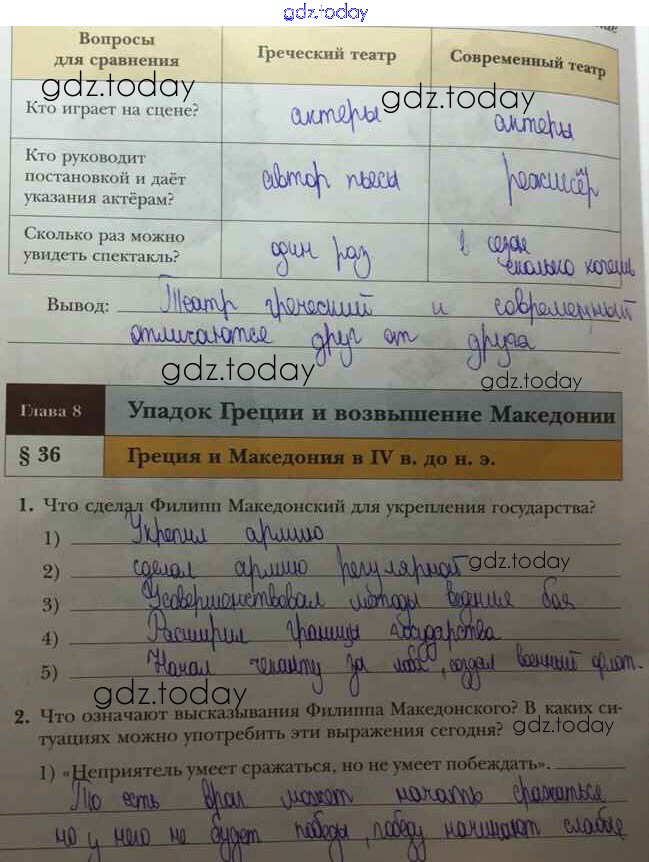 gdz.today
Вопросы
для сравнения
Греческий театр
Современный театр
gdz.today
gdz.today
Кто играет на сцене?
актеры
актеры
Кто руководит
постановкой и даёт
указания актёрам?
автор пьесы
режиссёр
Сколько раз можно
увидеть спектакль?
один раз
в сезон
сколько хочешь
Вывод: Театр греческий и современный
отличаются друг от друга
gdz.today
gdz.today
Глава 8
Упадок Греции и возвышение Македонии
§ 36
Греция и Македония в IV в. до н. э.
1. Что сделал Филипп Македонский для укрепления государства?
1) Укрепил армию
2) сделал армию регулярной
gdz.today
3) Усовершенствовал методы ведения боя
4) Расширил границы государства
5) Начал чеканку за, создал военный флот.
gdz.today
2. Что означают высказывания Филиппа Македонского? В каких си-
туациях можно употребить эти выражения сегодня?
gdz.today
1) «Неприятель умеет сражаться, но не умеет побеждать».
То есть враг может начать сражаться
но у него не будет победы, победу начинают слабые